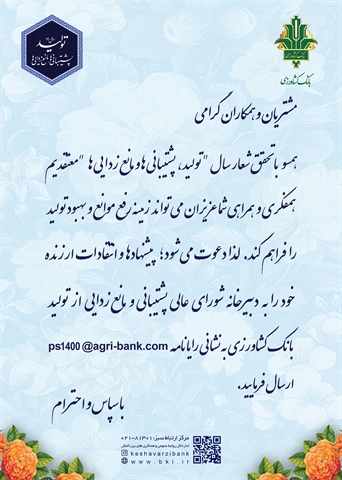 تولید
پشتیبانی ها مانع زدایی ها
بانک کشاورزی
مشتریان و همکاران گرامی
همسو با تحقق شعار سال "تولید، پشتیبانی ها و مانع زدایی ها" معتقدیم
همفکری و همراهی شما عزیزان می تواند زمینه رفع موانع و بهبود تولید
را فراهم کند. لذا دعوت می شود؛ پیشنهادها و انتقادات ارزنده
خود را به دبیرخانه شورای عالی پشتیبانی و مانع زدایی از تولید
بانک کشاورزی به نشانی رایانامه ps1400@agri-bank.com
ارسال فرمایید.
با سپاس و احترام
مرکز ارتباط سبز: ۸۱۳۰۱-۰۲۱
keshavarzibank
www.bki.ir